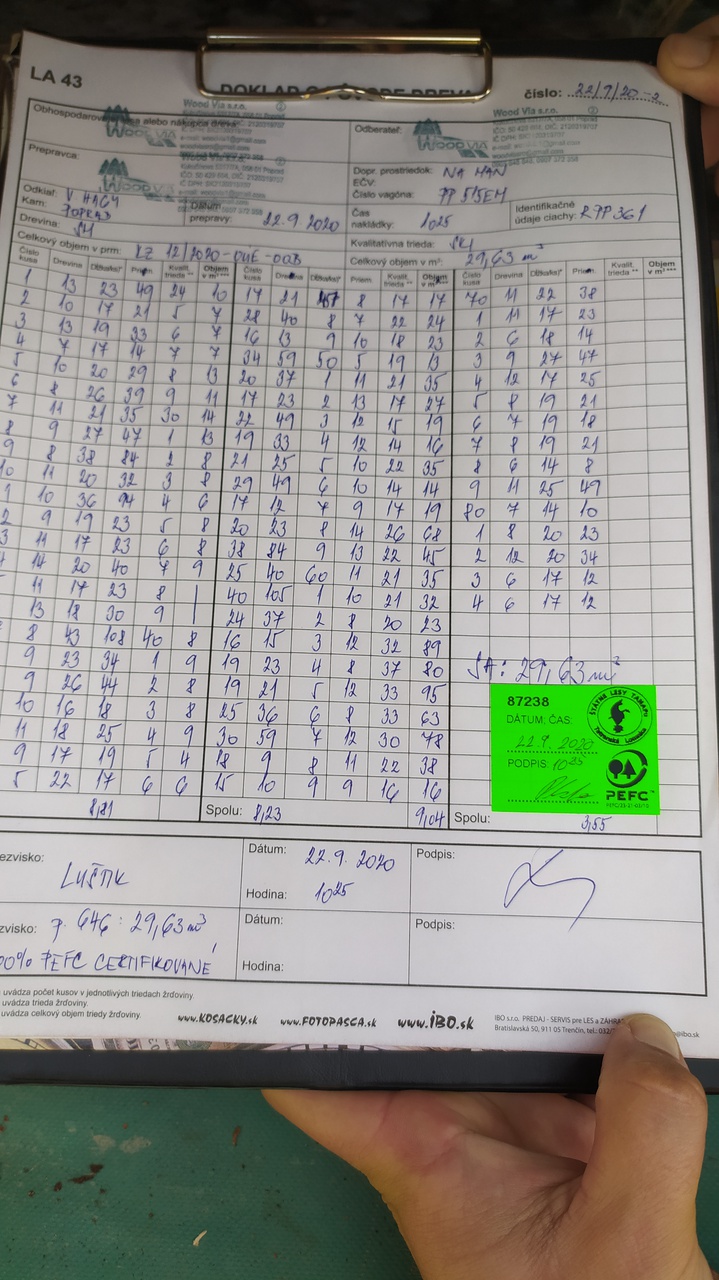 LA 43
číslo: 22/9/20-2
Wood Via s.r.o.
Wood Via s.r.o.
Obhospodarov
alebo nákupca dreva:
WOOD VIA
Odberateľ:
WOOD VIA
Prepravca:
WOOD VIA
Dopr. prostriedok: NA HAN
EČV:
Číslo vagóna: PP 515EM
Odkiaľ: V HÁGY
Kam: POPRAD
Dátum prepravy: 22.9.2020
Čas nakládky: 1025
Identifikačné údaje ciachy: RPP361
Drevina: SM
Kvalitatívna trieda:
Celkový objem v prm:
Celkový objem v m³: 29,63 m³
Číslo kusa Drevina Dĺžka/hr* Priem. Kvalit. trieda ** Objem v m³ *** Číslo kusa Drevina Dĺžka/hr* Priem. Kvalit. trieda ** Objem v m³ *** Číslo kusa Drevina Dĺžka/hr* Priem. Kvalit. trieda ** Objem v m³ ***
1 13 23 49 24 10 17 21 8 17 17 70 11 22 38
2 10 17 21 5 7 28 40 8 7 22 24 1 11 17 23
3 13 19 33 6 7 16 13 9 10 18 23 2 6 18 14
4 7 17 14 7 7 34 59 50 5 19 13 3 9 27 47
5 10 20 29 8 13 20 37 1 11 21 35 4 12 17 25
6 8 26 39 9 11 17 23 2 13 17 27 5 8 19 21
7 11 21 35 30 14 22 49 3 12 15 19 6 7 19 18
8 9 27 47 1 13 19 33 4 12 14 16 7 8 19 21
9 8 38 84 2 8 21 25 5 10 22 35 8 6 14 8
10 11 20 32 3 8 29 49 6 10 14 14 9 11 25 49
1 10 36 94 4 6 17 12 7 9 17 19 80 7 14 10
2 9 19 23 5 8 20 23 8 14 26 68 1 8 20 23
3 11 17 23 6 8 38 84 9 13 22 45 2 12 20 34
4 14 20 40 7 9 25 40 60 11 21 35 3 6 17 12
11 17 23 8 | 40 105 1 10 21 32 4 6 17 12
13 18 30 9 | 24 37 2 8 20 23
8 43 108 40 8 16 15 3 12 32 89
9 23 34 1 9 19 23 4 8 37 80
SM: 29,63 m³
9 26 44 2 8 19 21 5 12 33 95
10 16 18 3 8 25 36 6 8 33 63
11 18 25 4 9 30 59 7 12 30 78
9 17 19 5 4 18 9 8 11 22 38
5 22 17 6 6 15 10 9 9 16 16
87238
ŠTÁTNE LESY TANAPu
Tatranská Lomnica
DÁTUM: ČAS:
22.9.2020
PODPIS: 1025
PEFC
8,81 Spolu: 8,23 9,04 Spolu: 3,55
ezvisko: LUŠTIK
Dátum: 22.9.2020
Hodina: 1025
Podpis:
zvisko: P. 646: 29,63 m³
00% PEFC CERTIFIKOVANÉ
Dátum:
Hodina:
Podpis:
uvádza počet kusov v jednotlivých triedach žrďoviny.
uvádza trieda žrďoviny.
uvádza celkový objem triedy žrďoviny.
www.KOSACKY.sk www.FOTOPASCA.sk www.iBO.sk
IBO s.r.o. PREDAJ - SERVIS pre LES a ZÁHRA
Bratislavská 50, 911 05 Trenčín, tel.: 032/
ibo.sk